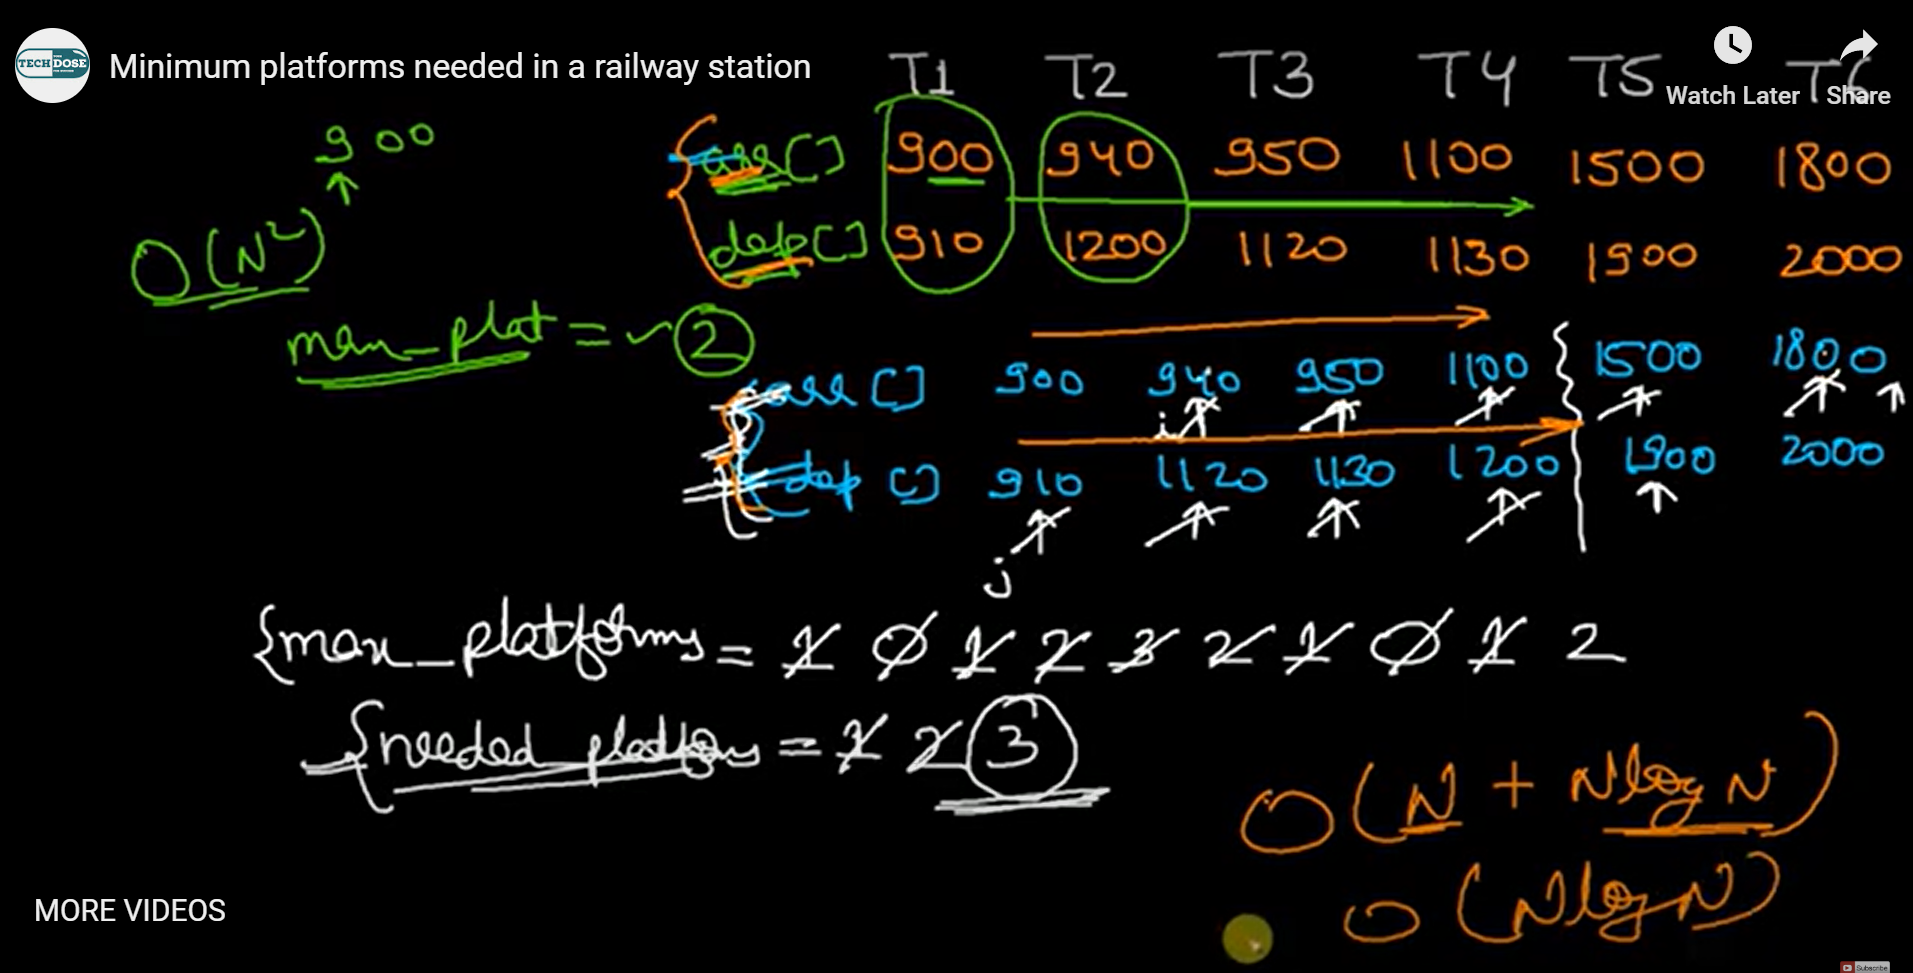 TECH DOSE
Minimum platforms needed in a railway station
Watch Later
Share
T1 T2 T3 T4 T5 T6
900
arr[] 900 940 950 1100 1500 1800
dep[] 910 1200 1120 1130 1900 2000
O(N²)
max_plat = 2
arr[] 900 940 950 1100 1500 1800
i
dep[] 910 1120 1130 1200 1900 2000
j
max_platforms = 1 0 1 2 3 2 1 0 1 2
needed platforms = 1 2 3
O(N + NlogN)
O(NlogN)
MORE VIDEOS
Subscribe